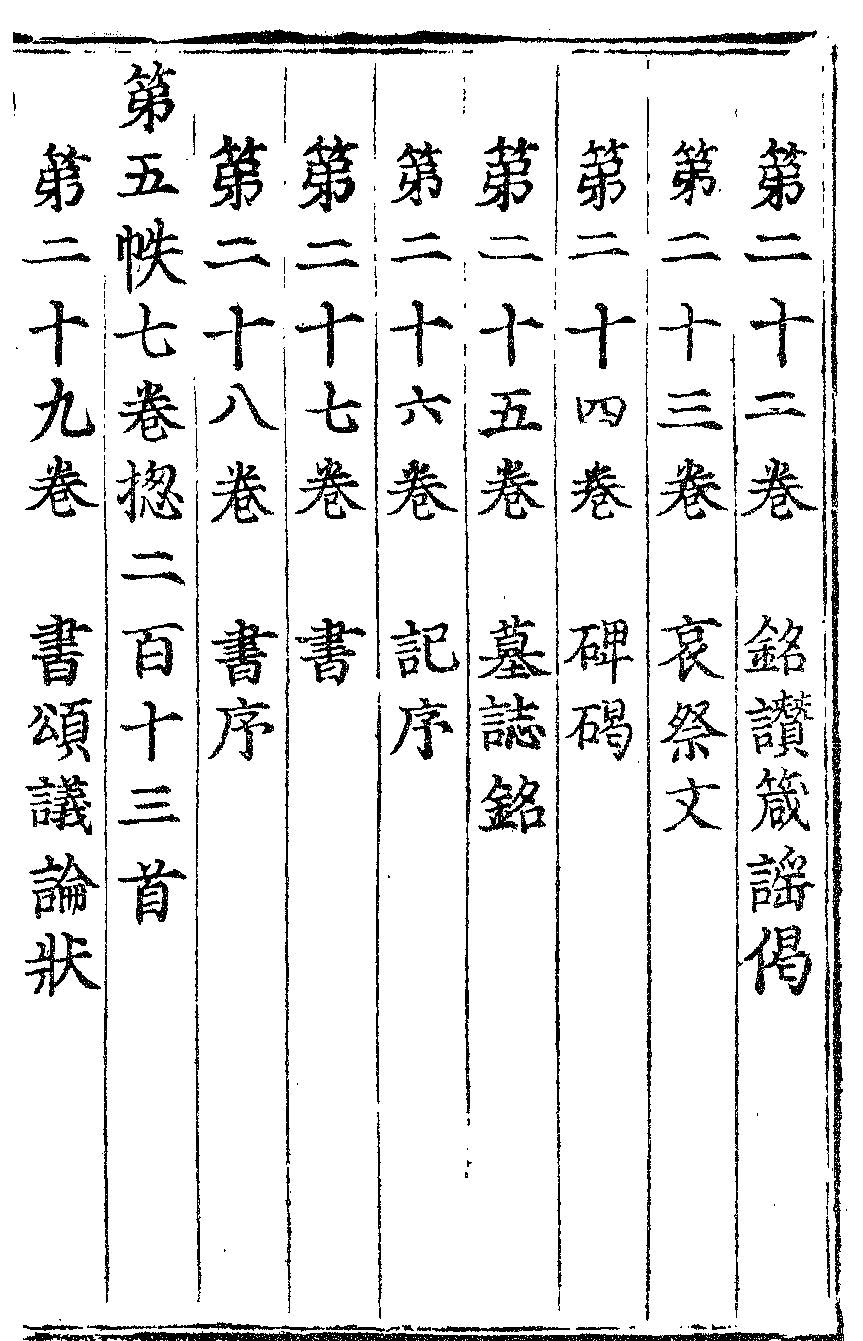 第二十二卷 銘讚箴謡偈
第二十三卷 哀祭文
第二十四卷 碑碣
第二十五卷 墓誌銘
第二十六卷 記序
第二十七卷 書
第二十八卷 書序
第五帙七卷揔二百十三首
第二十九卷 書頌議論狀